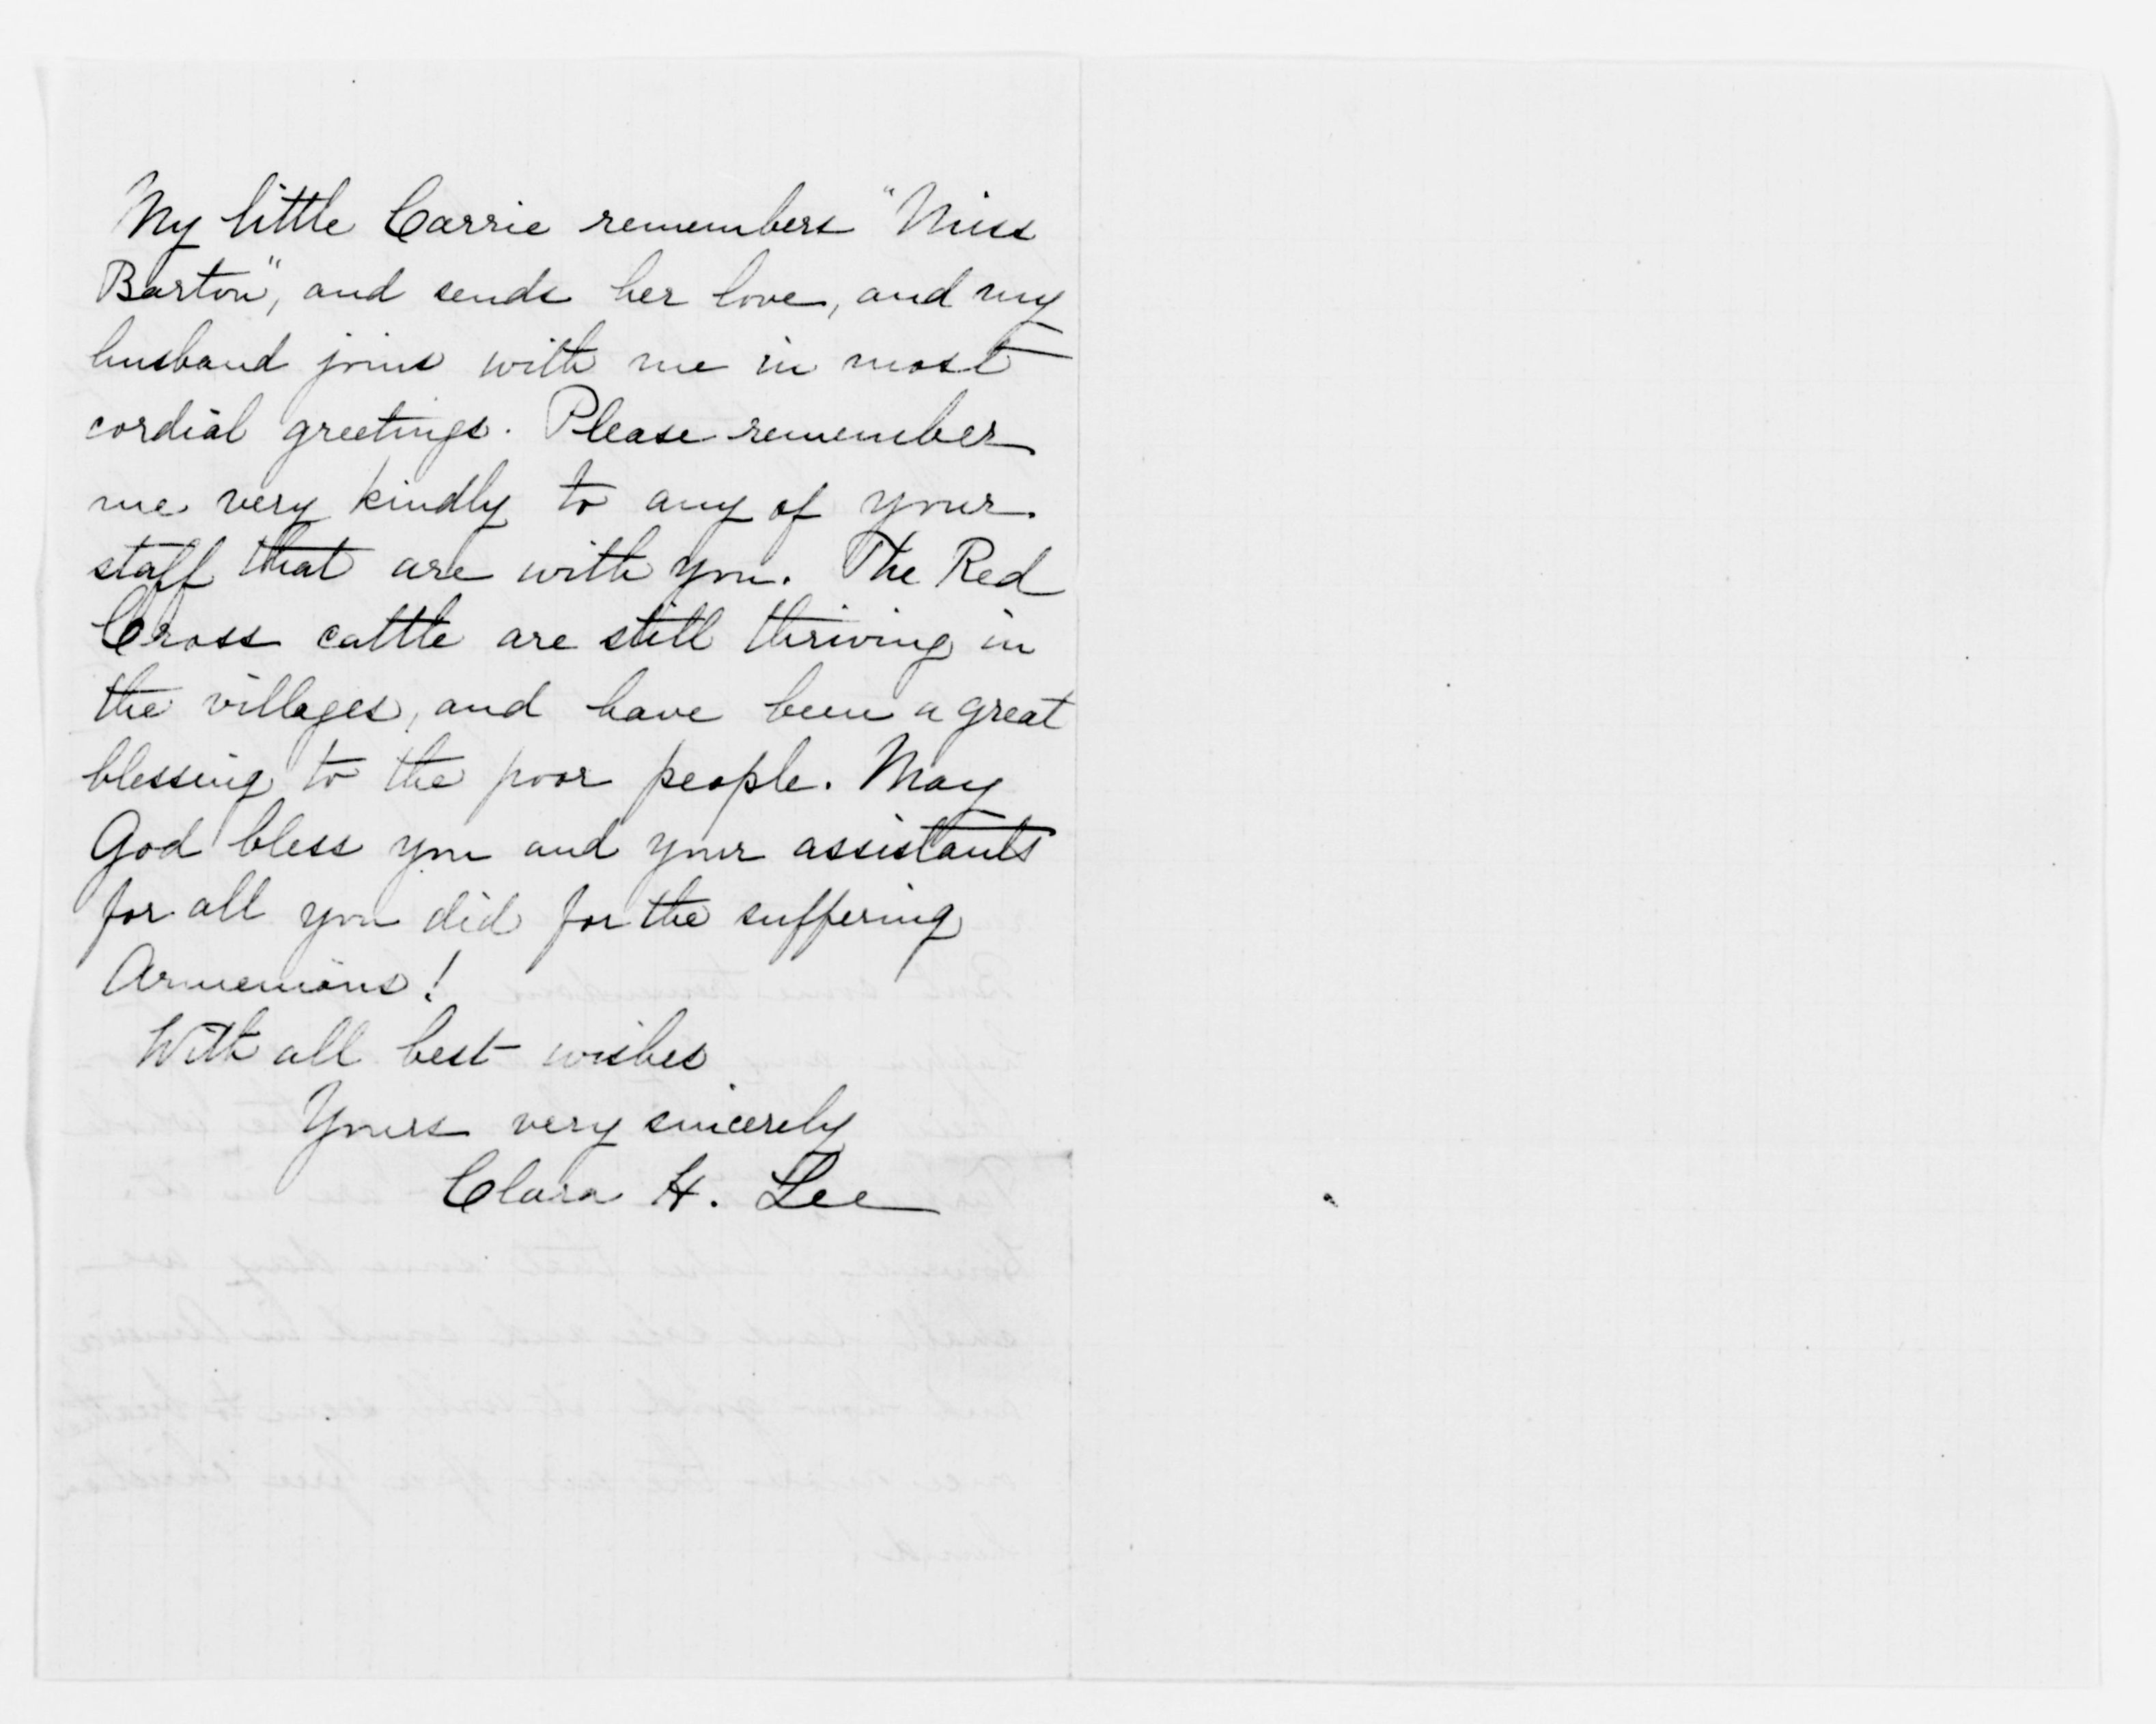 My little Carrie remembers "Miss
Barton", and sends her love, and my
husband joins with me in most
cordial greetings. Please remember
me very kindly to any of your
staff that are with you. The Red
Cross cattle are still thriving in
the villages, and have been a great
blessing to the poor people. May
God bless you and your assistants
for all you did for the suffering
Armenians!
With all best wishes
Yours very sincerely
Clara H. Lee